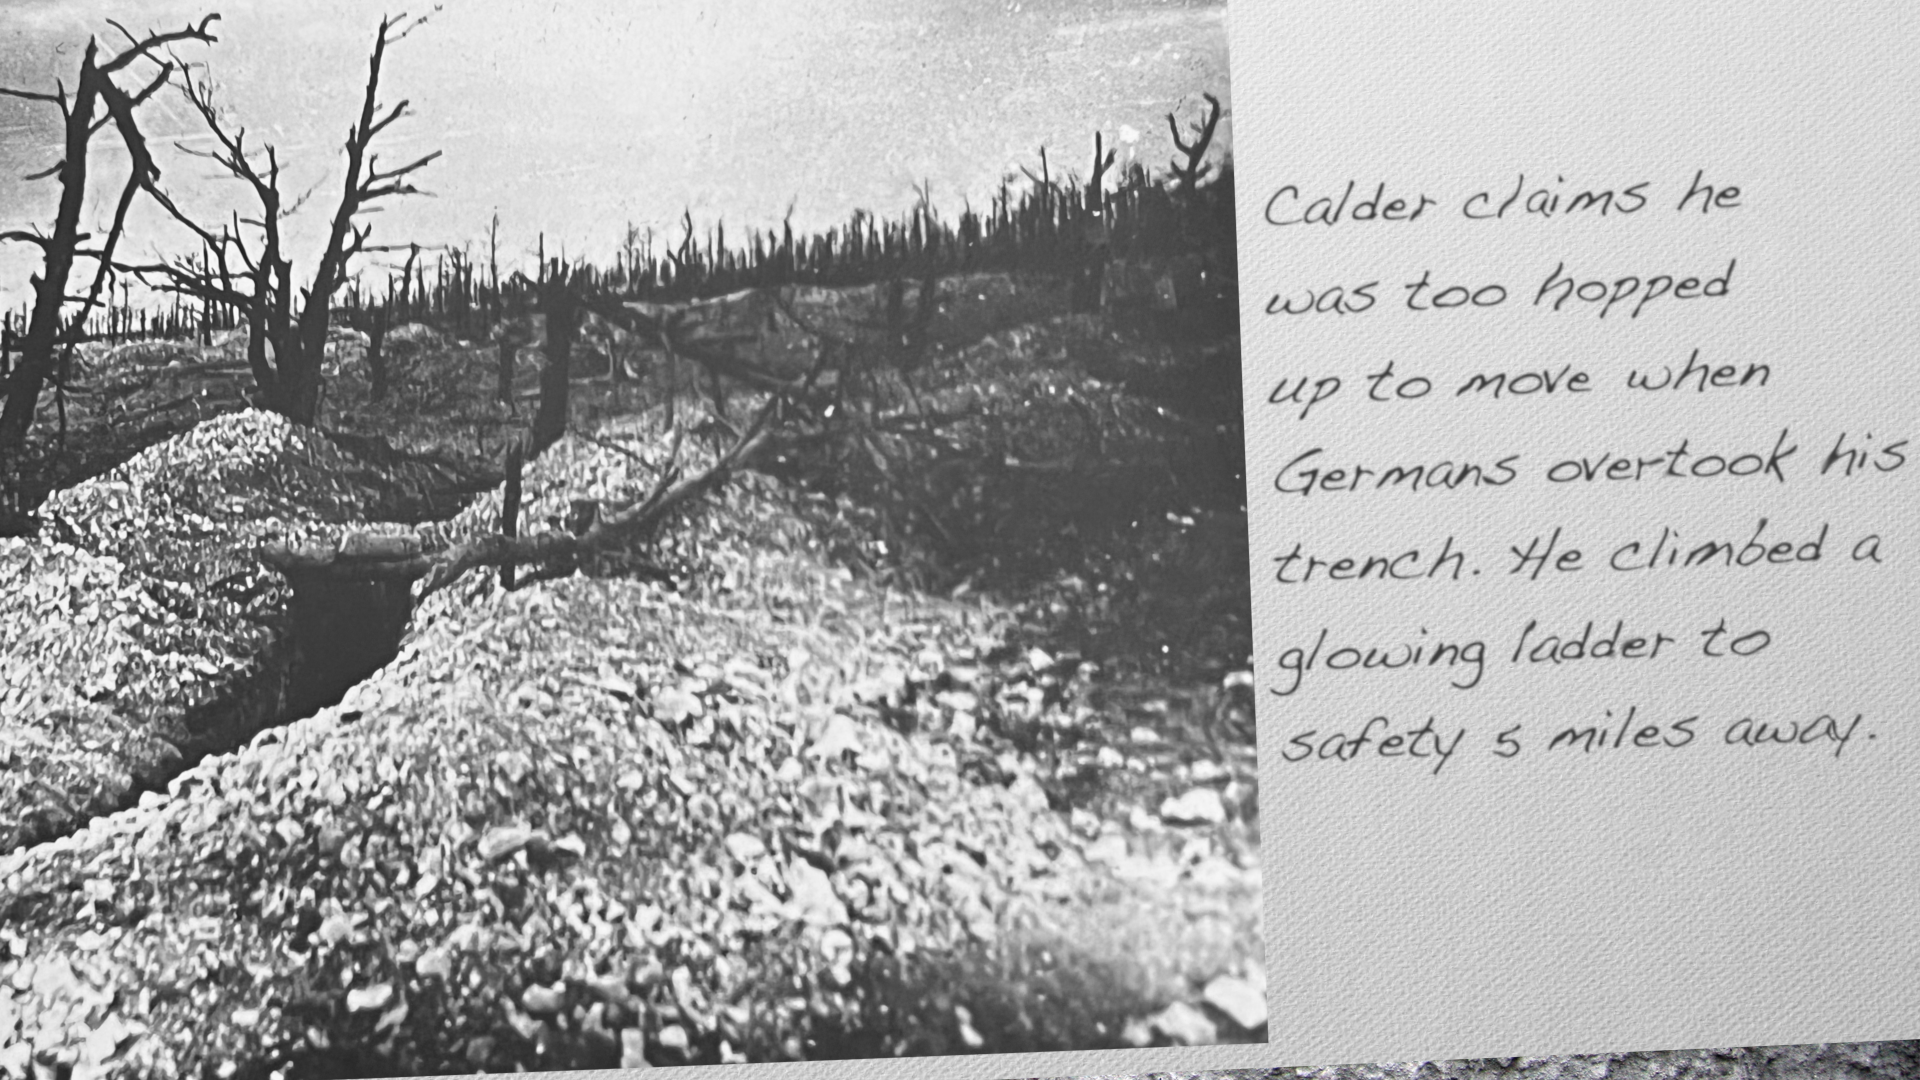 Calder claims he
was too hopped
up to move when
Germans overtook his
trench. He climbed a
glowing ladder to
safety 5 miles away.